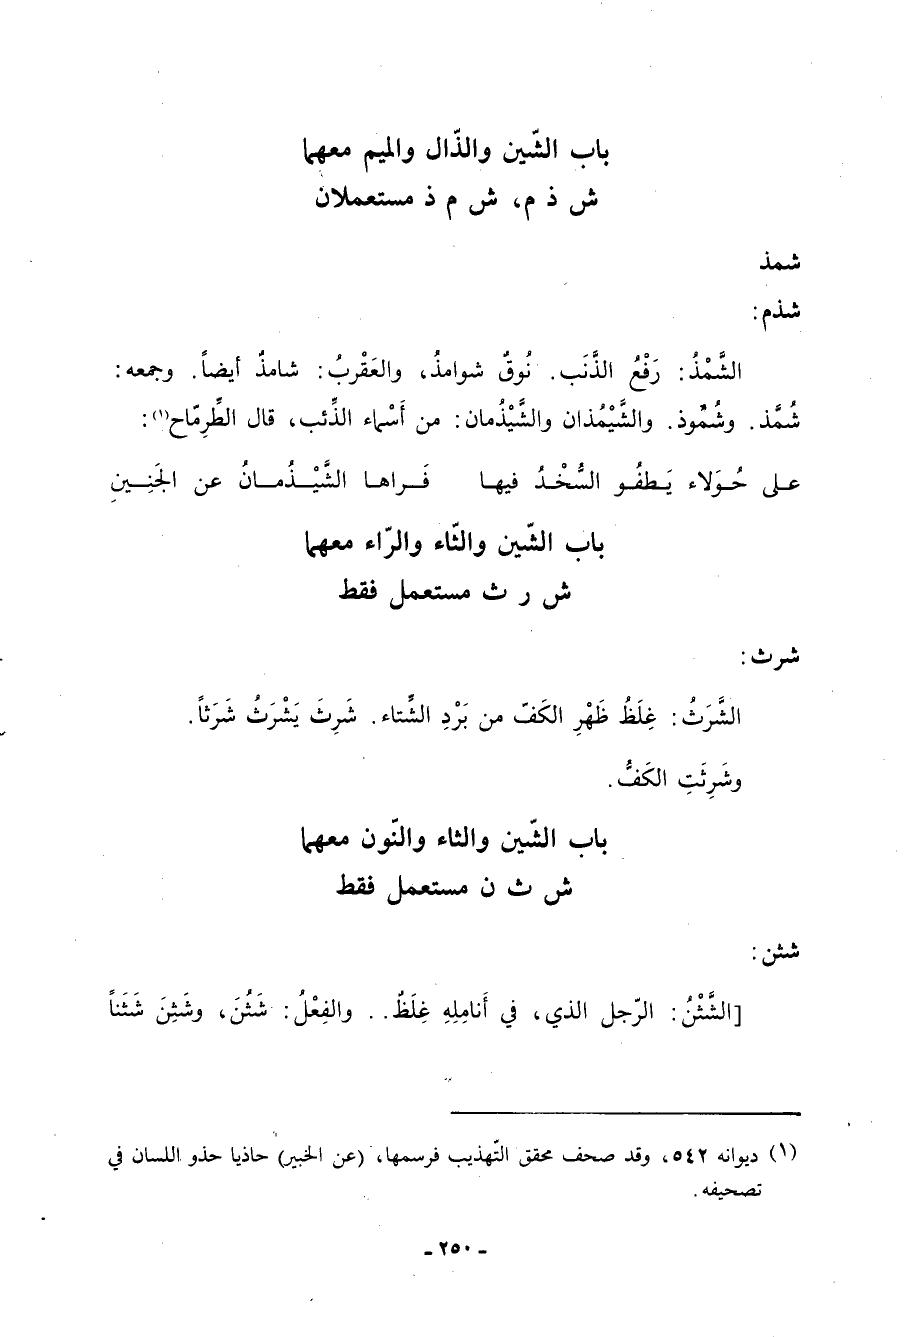 باب الشّين والذّال والميم معهما
ش ذ م، ش م ذ مستعملان
شمذ
شذم:
الشَّمْذُ: رَفْعُ الذَّنَب. نُوقٌ شوامذُ، والعَقْربُ: شامذٌ أيضاً. وجمعه:
شُمَّذ. وشُمُّوذ. والشَّيْمُذان والشَّيْذُمان: من أَسْماء الذّئب، قال الطِّرِمّاح(١):
على حُوَلاء يَطفُو السُّخْدُ فيها فَراها الشَّيْذُمانُ عن الجَنِينِ
باب الشّين والثّاء والرّاء معهما
ش ر ث مستعمل فقط
شرث:
الشَّرَثُ: غِلَظُ ظَهْرِ الكَفّ من بَرْدِ الشِّتاء. شَرِثَ يَشْرَثُ شَرَثاً.
وشَرِثَتِ الكَفُّ.
باب الشّين والثاء والنّون معهما
ش ث ن مستعمل فقط
شثن:
[الشَّثْنُ: الرّجل الذي، في أَنامِلِهِ غِلَظٌ.. والفِعْلُ: شَثُنَ، وشَثِنَ شَثَناً
(١) ديوانه ٥٤٢، وقد صحف محقق التّهذيب فرسمها، (عن الخبير) حاذيا حذو اللسان في
تصحيفه.
ـ ٢٥٠ ـ